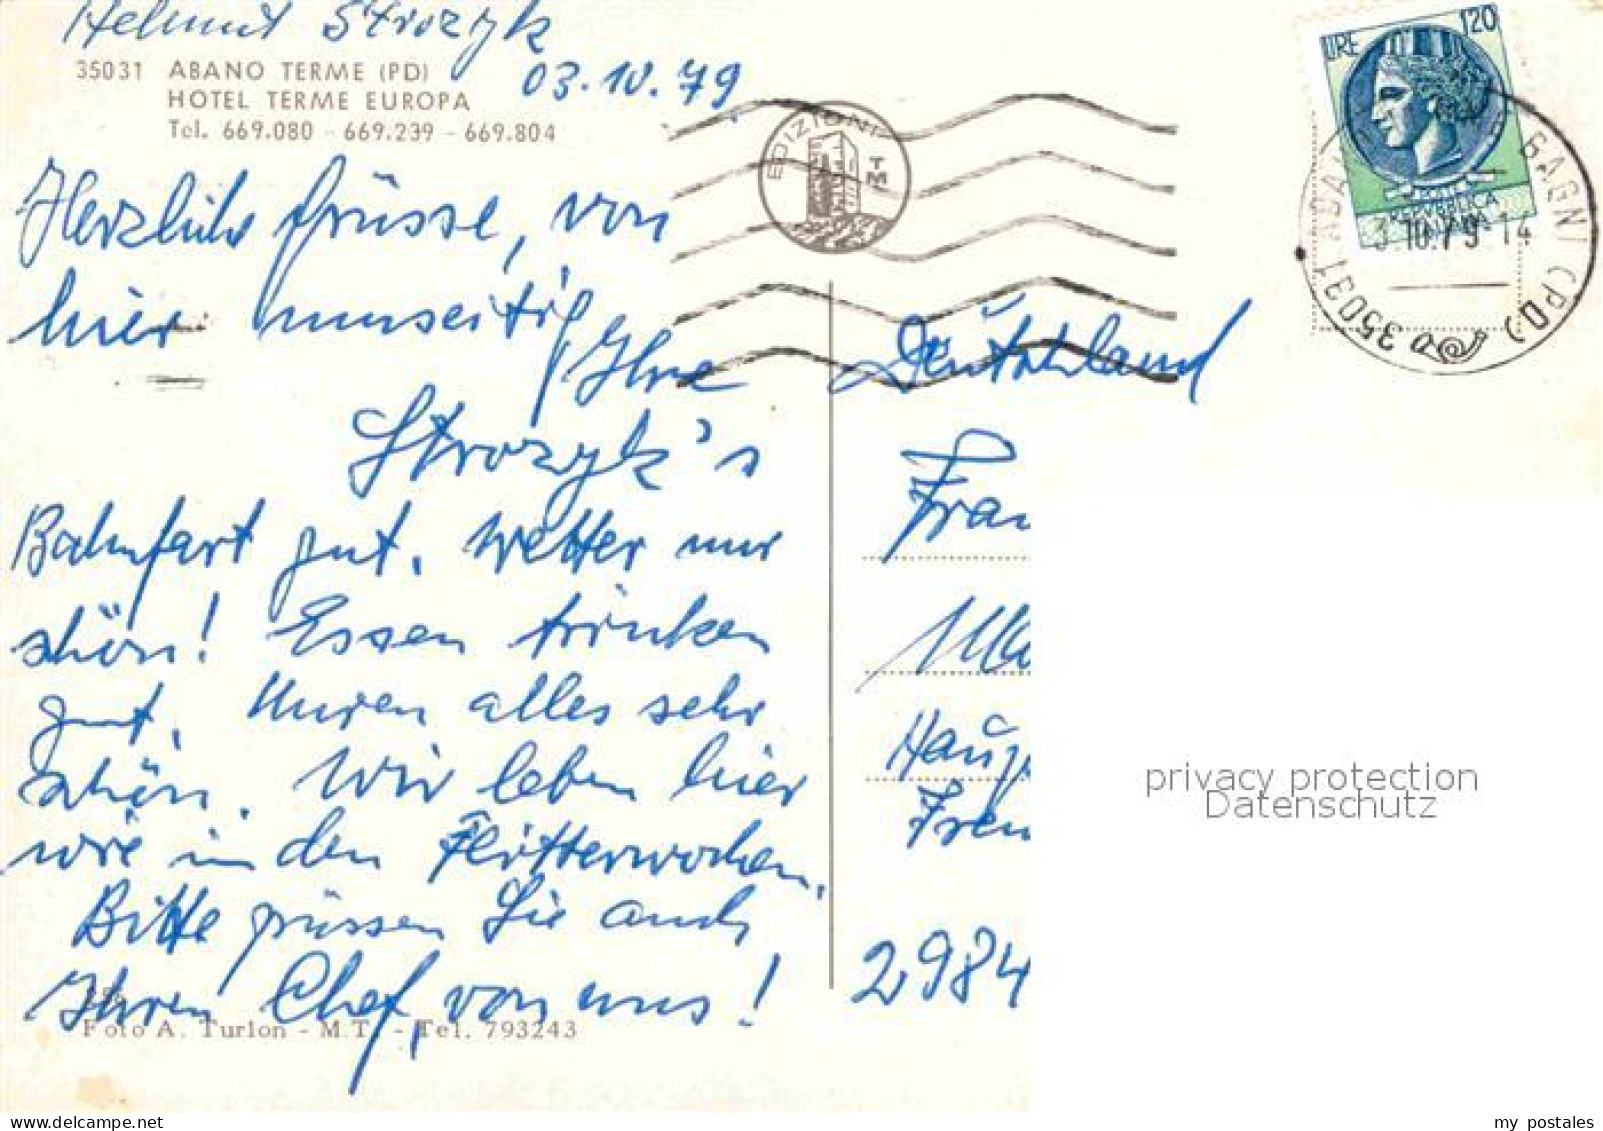 Helmut Strozyk
35031 ABANO TERME (PD)
HOTEL TERME EUROPA
Tel. 669.080 - 669.239 - 669.804
03.10.79
EDIZIONI
T
M
LIRE 120
REPVBBLICA
ITALIANA
35031 ABANO BAGNI (PD)
3.10.79 14
Herzliche Grüsse, von
hier
Ihre
Strozyk's
Bahnfart gut. Wetter nur
schön! Essen trinken
gut. Kuren alles sehr
schön. Wir leben hier
wie in den Flitterwochen.
Bitte grüssen Sie auch
Ihren Chef, von uns!
Foto A. Turlon - M.T. - Tel. 793243
Deutschland
2984
privacy protection
Datenschutz
my postales